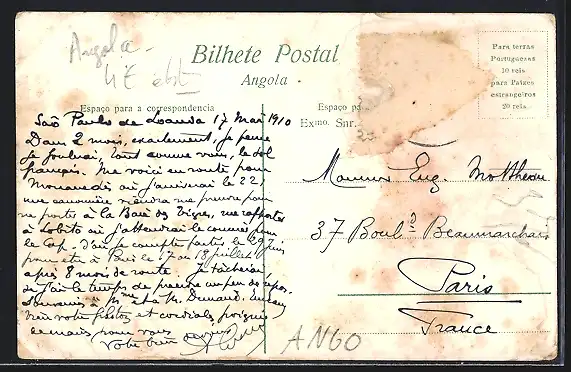 Angola -
Bilhete Postal
Angola
Para terras
Portuguezas
10 reis
para Paizes
estrangeiros
20 reis
Espaço para a correspondencia
Espaço pa
Exmo. Snr.
São Paulo de Loanda 17 Mai 1910
Dans 2 mois, exactement, je pense
je foulerai, tout comme vous, le sol
français. Me voici en route pour
Mossamedes où j'arriverai le 22,
une canonnière viendra me prendre pour
me porter à la Baie des Tigres, me rapporter
à Lobito où j'attendrai le courrier pour
le Cap. D'où je compte partir le 29 Juin
pour être à Paris le 17 ou 18 juillet,
après 8 mois de route. Je tâcherai,
si j'ai le temps de prendre un peu de repos.
souvenirs à Mme et à M. Durand,
bien votre et cordiales poignées
de mains pour vous
Votre bien
Monsieur Eug. Mottheau
37 Boul d Beaumarchais
Paris
France
AN60